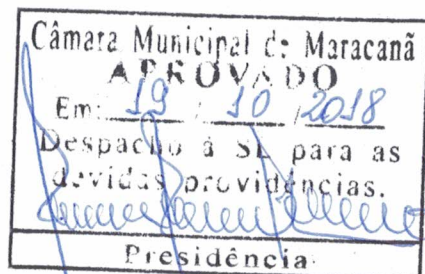 Câmara Municipal de Maracanã
APROVADO
Em: 19 / 10 / 2018
Despacho à SL para as
devidas providências.
Presidência